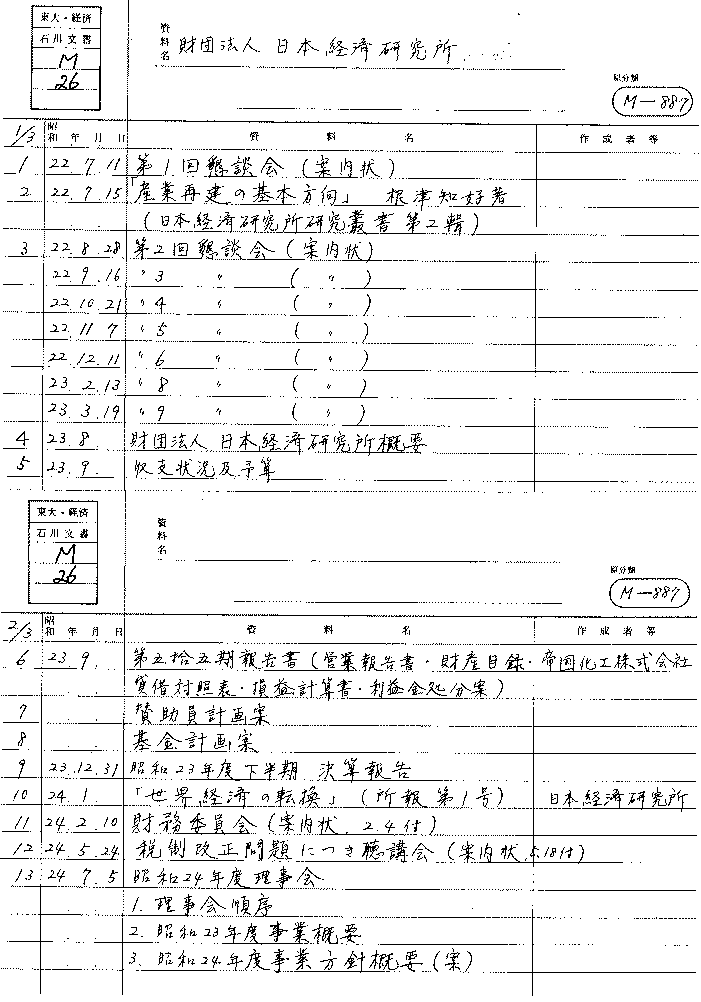 東大・経済
石川文書
M
26
資料名 財団法人 日本経済研究所
原分類
M-887
1/3 昭和 年 月 日 資料名 作成者等
1 22.7.11 第1回懇談会(案内状)
2 22.7.15 「産業再建の基本方向」 根津知好著
(日本経済研究所研究叢書 第2輯)
3 22.8.28 第2回懇談会(案内状)
22.9.16 〃3 〃 (〃)
22.10.21 〃4 〃 (〃)
22.11.7 〃5 〃 (〃)
22.12.11 〃6 〃 (〃)
23.2.13 〃8 〃 (〃)
23.3.19 〃9 〃 (〃)
4 23.8. 財団法人 日本経済研究所概要
5 23.9. 収支状況及予算
東大・経済
石川文書
M
26
資料名
原分類
M-887
2/3 昭和 年 月 日 資料名 作成者等
6 23.9. 第五拾五期報告書(営業報告書・財産目録・帝国化工株式会社
貸借対照表・損益計算書・利益金処分案)
7 賛助員計画案
8 基金計画案
9 23.12.31 昭和23年度下半期 決算報告
10 24.1. 「世界経済の転換」(所報 第1号) 日本経済研究所
11 24.2.10 財務委員会(案内状、2.4付)
12 24.5.24 税制改正問題につき聴講会(案内状、5.18付)
13 24.7.5 昭和24年度理事会
1. 理事会順序
2. 昭和23年度事業概要
3. 昭和24年度事業方針概要(案)